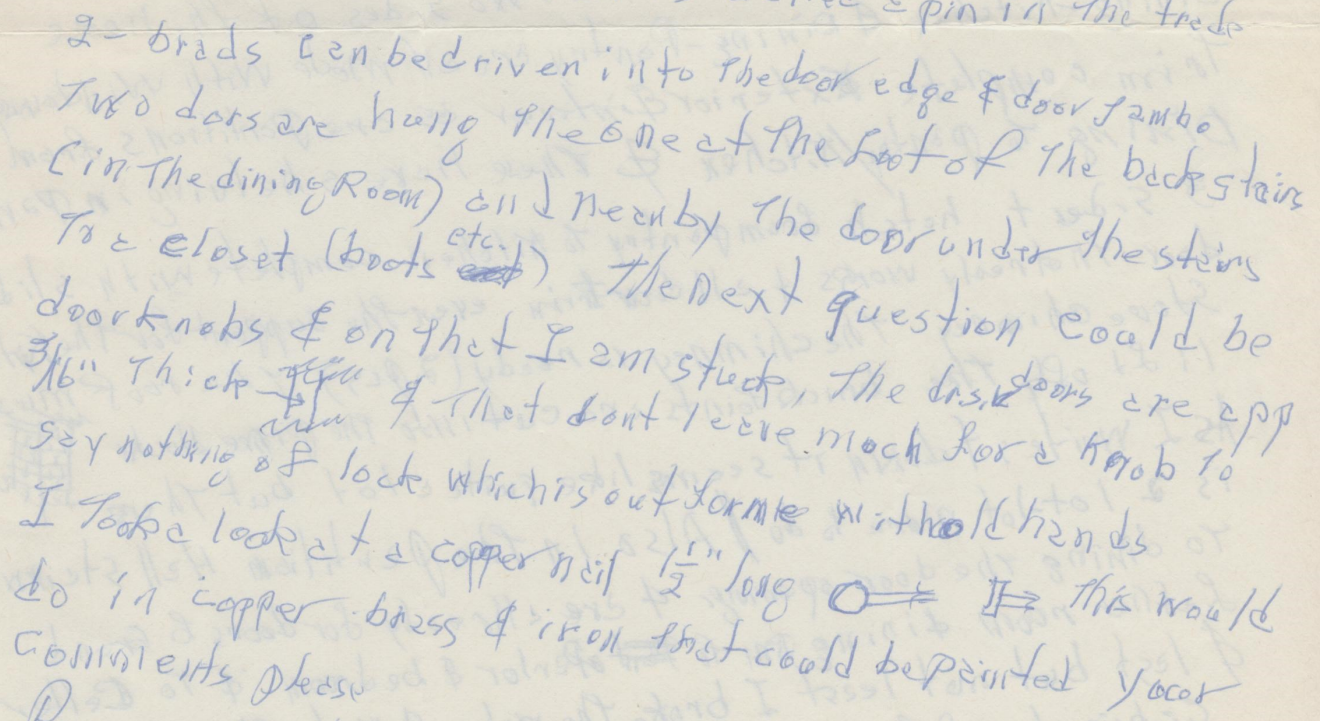 a pin in the trade
2- brads can be driven into the door edge & door Jambs
Two dors are hung the one at the foot of the back stairs
(in the dining Room) and nearby the door under the stairs
To a closet (boots etc.) The next question could be
doorknobs & on that I am stuck, The doors are app
3/16" Thick & That dont leave much for a Knob To
say nothing of lock which is out for me with old hands
I Took a look at a copper nail 1 1/2" long This would
do in copper brass & iron that could be painted your
Comments please